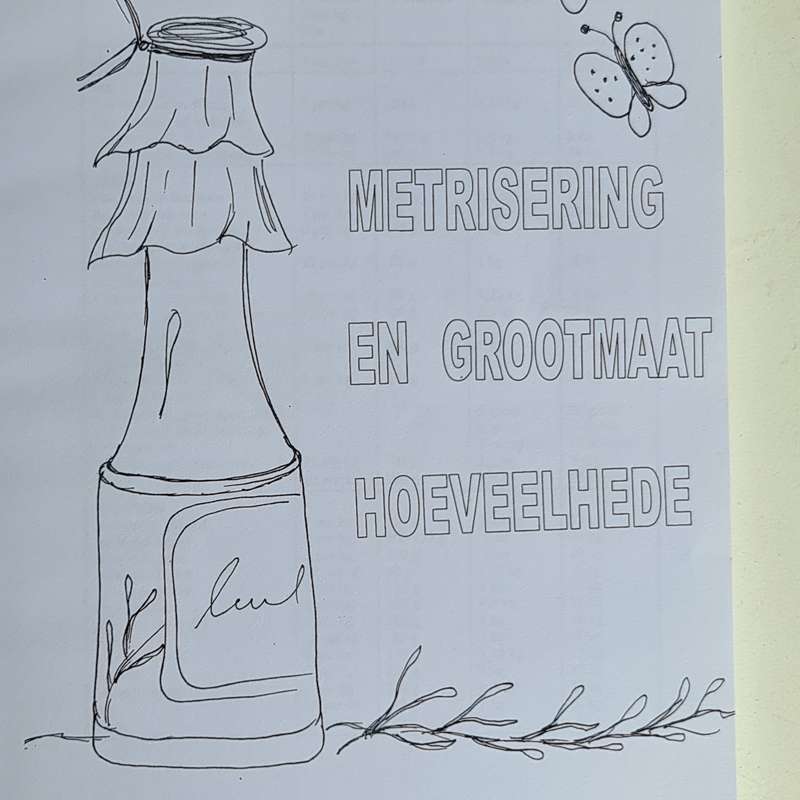 METRISERING
EN GROOTMAAT
HOEVEELHEDE